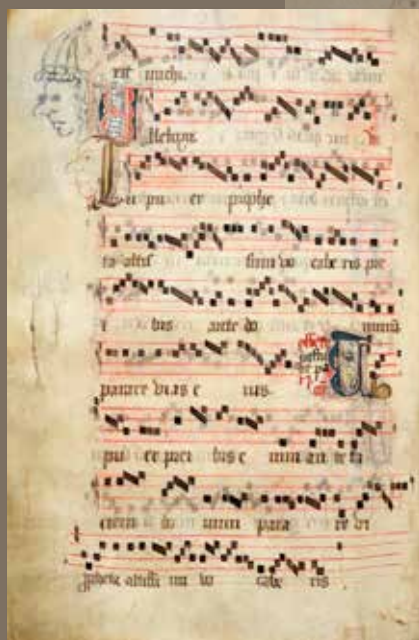 rit michi.
Alleluya.
Tu pu er prophe
ta altis simi vo cabe ris pre
i bis ante do minū
parare vias e ius. T
pu er prei bis e nim an te fa
ciem do mini para re vi
pheta altissi mi vo cabe ris